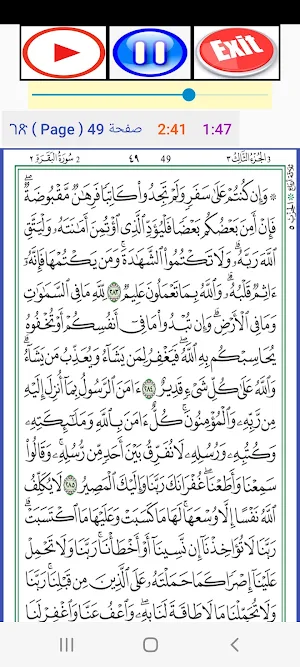 Exit
ገጽ ( Page ) 49 صفحة 2:41 1:47
3 الجزء الثالث ٣ 49 ٤٩ 2 سورة البقرة ٢
۞ وَإِن كُنتُمْ عَلَىٰ سَفَرٍ وَلَمْ تَجِدُوا۟ كَاتِبًا فَرِهَٰنٌ مَّقْبُوضَةٌ ۖ
فَإِنْ أَمِنَ بَعْضُكُم بَعْضًا فَلْيُؤَدِّ ٱلَّذِى ٱؤْتُمِنَ أَمَٰنَتَهُۥ وَلْيَتَّقِ
ٱللَّهَ رَبَّهُۥ ۗ وَلَا تَكْتُمُوا۟ ٱلشَّهَٰدَةَ ۚ وَمَن يَكْتُمْهَا فَإِنَّهُۥٓ
ءَاثِمٌ قَلْبُهُۥ ۗ وَٱللَّهُ بِمَا تَعْمَلُونَ عَلِيمٌ ٢٨٣ لِّلَّهِ مَا فِى ٱلسَّمَٰوَٰتِ
وَمَا فِى ٱلْأَرْضِ ۗ وَإِن تُبْدُوا۟ مَا فِىٓ أَنفُسِكُمْ أَوْ تُخْفُوهُ
يُحَاسِبْكُم بِهِ ٱللَّهُ ۖ فَيَغْفِرُ لِمَن يَشَآءُ وَيُعَذِّبُ مَن يَشَآءُ ۗ
وَٱللَّهُ عَلَىٰ كُلِّ شَىْءٍ قَدِيرٌ ٢٨٤ ءَامَنَ ٱلرَّسُولُ بِمَآ أُنزِلَ إِلَيْهِ
مِن رَّبِّهِۦ وَٱلْمُؤْمِنُونَ ۚ كُلٌّ ءَامَنَ بِٱللَّهِ وَمَلَٰٓئِكَتِهِۦ
وَكُتُبِهِۦ وَرُسُلِهِۦ لَا نُفَرِّقُ بَيْنَ أَحَدٍ مِّن رُّسُلِهِۦ ۚ وَقَالُوا۟
سَمِعْنَا وَأَطَعْنَا ۖ غُفْرَانَكَ رَبَّنَا وَإِلَيْكَ ٱلْمَصِيرُ ٢٨٥ لَا يُكَلِّفُ
ٱللَّهُ نَفْسًا إِلَّا وُسْعَهَا ۚ لَهَا مَا كَسَبَتْ وَعَلَيْهَا مَا ٱكْتَسَبَتْ ۗ
رَبَّنَا لَا تُؤَاخِذْنَآ إِن نَّسِينَآ أَوْ أَخْطَأْنَا ۚ رَبَّنَا وَلَا تَحْمِلْ
عَلَيْنَآ إِصْرًا كَمَا حَمَلْتَهُۥ عَلَى ٱلَّذِينَ مِن قَبْلِنَا ۚ رَبَّنَا
وَلَا تُحَمِّلْنَا مَا لَا طَاقَةَ لَنَا بِهِۦ ۖ وَٱعْفُ عَنَّا وَٱغْفِرْ لَنَا